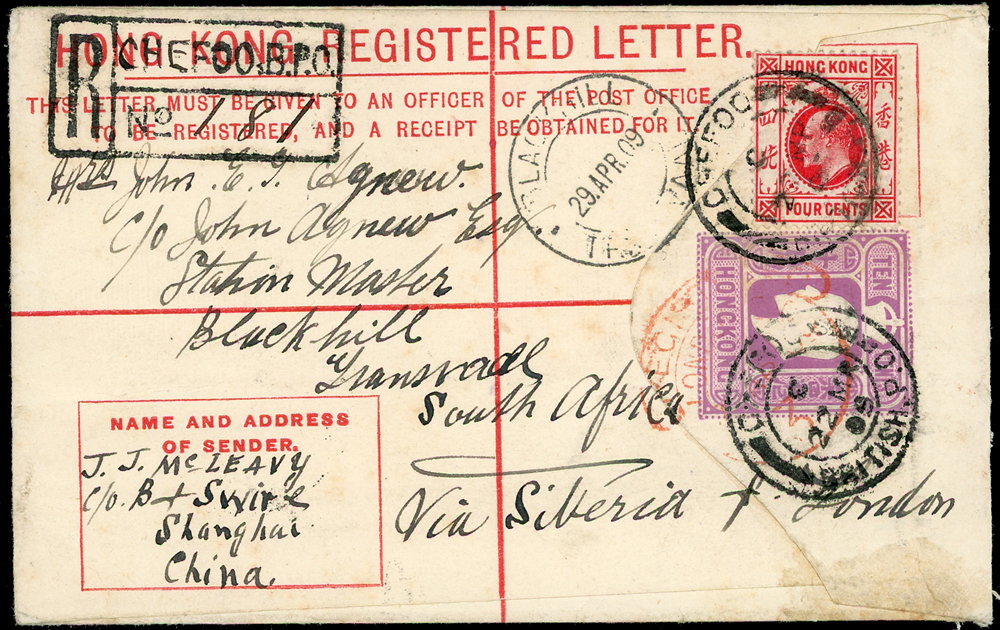 HONG KONG REGISTERED LETTER.
R CHEFOO.B.P.O.
No 187
THIS LETTER MUST BE GIVEN TO AN OFFICER OF THE POST OFFICE
TO BE REGISTERED, AND A RECEIPT BE OBTAINED FOR IT.
29.APR.09
HONG KONG
香港
四
FOUR CENTS
CHEFOO
TEN
HONG KONG
22 MR
09
BRITISH P.O.
Mrs John E. J. Agnew.
c/o John Agnew Esq.
Station Master
Blackhill
Transvaal
South Africa
Via Siberia + London
NAME AND ADDRESS
OF SENDER.
J. J. McLEAVY
c/o. B + Swire
Shanghai
China.